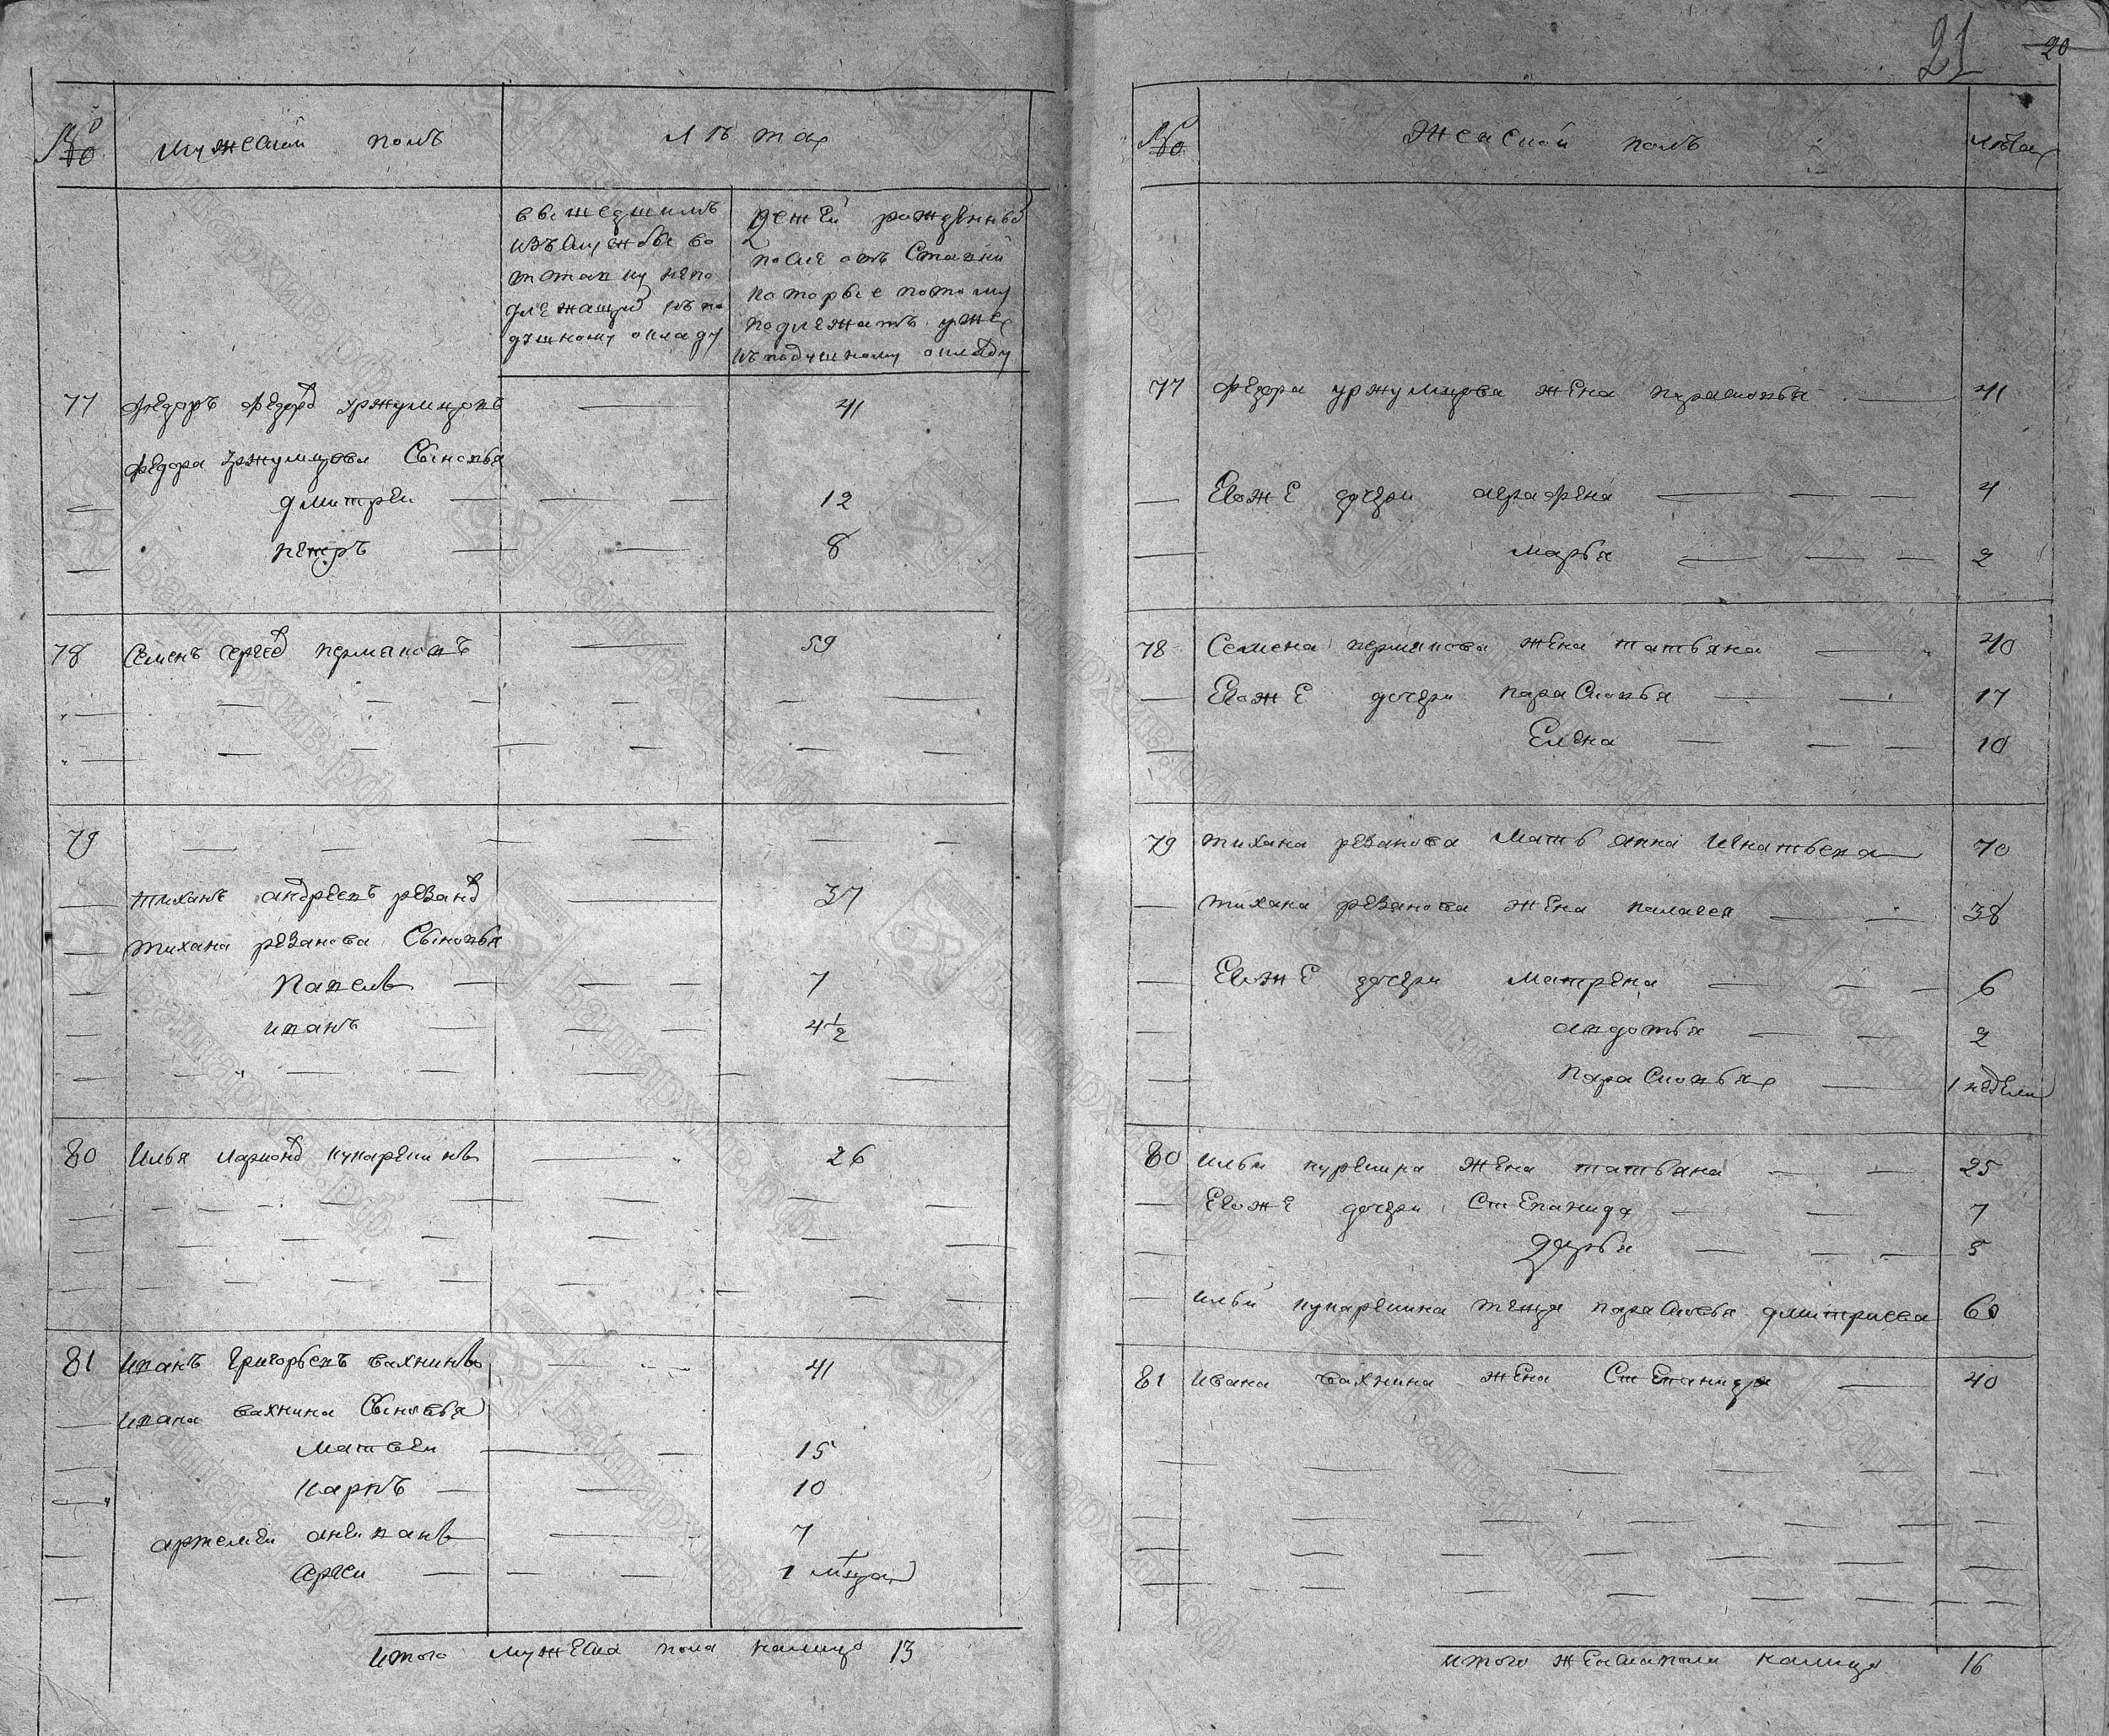 21 20
№ Мужеский полъ Лѣтах
вышедшимъ
изъ службы во
отставку непо
длежащих къ по
душному окладу
Детей рожденных
после отъ Ставки
которые потому
подлежатъ уже
къ подушному окладу
77 Федоръ Федоров Уржумцовъ 41
Федора Уржумцова Сыновья
Дмитреи 12
Петръ 8
78 Семенъ Сергеев Пермяковъ 59
79
Тиханъ Андреевъ Резанов 37
Тихана Резанова Сыновья
Павелъ 7
Иванъ 4½
80 Илья Ларионов Кукаркинъ 26
81 Иванъ Григорьевъ Вахнинъ 41
Ивана Вахнина Сыновья
Матвеи 15
Карпъ 10
Артемеи 7
Сергеи 1 мцъа
Итого мужеска пола налицо 13
№ Женской полъ Лѣтах
77 Федора Уржумцова жена Парасковья 41
Евож е дочери Аграфена 4
Марья 2
78 Семена Пермякова жена Татьяна 40
Евож е дочери Парасковья 17
Елена 10
79 Тихана Резанова Мать Анна Игнатьева 70
Тихана Резанова жена Палагея 38
Евож е дочери Матрена 6
Авдотья 2
Парасковья 1 недели
80 Ильи жена Татьяна 25
Евож е дочери Степанида 7
Дарья 5
Ильи Кукаркина теща Парасковья Дмитриева 60
81 Ивана Вахнина жена Степанида 40
Итого женска пола налицо 16
башархив.рф